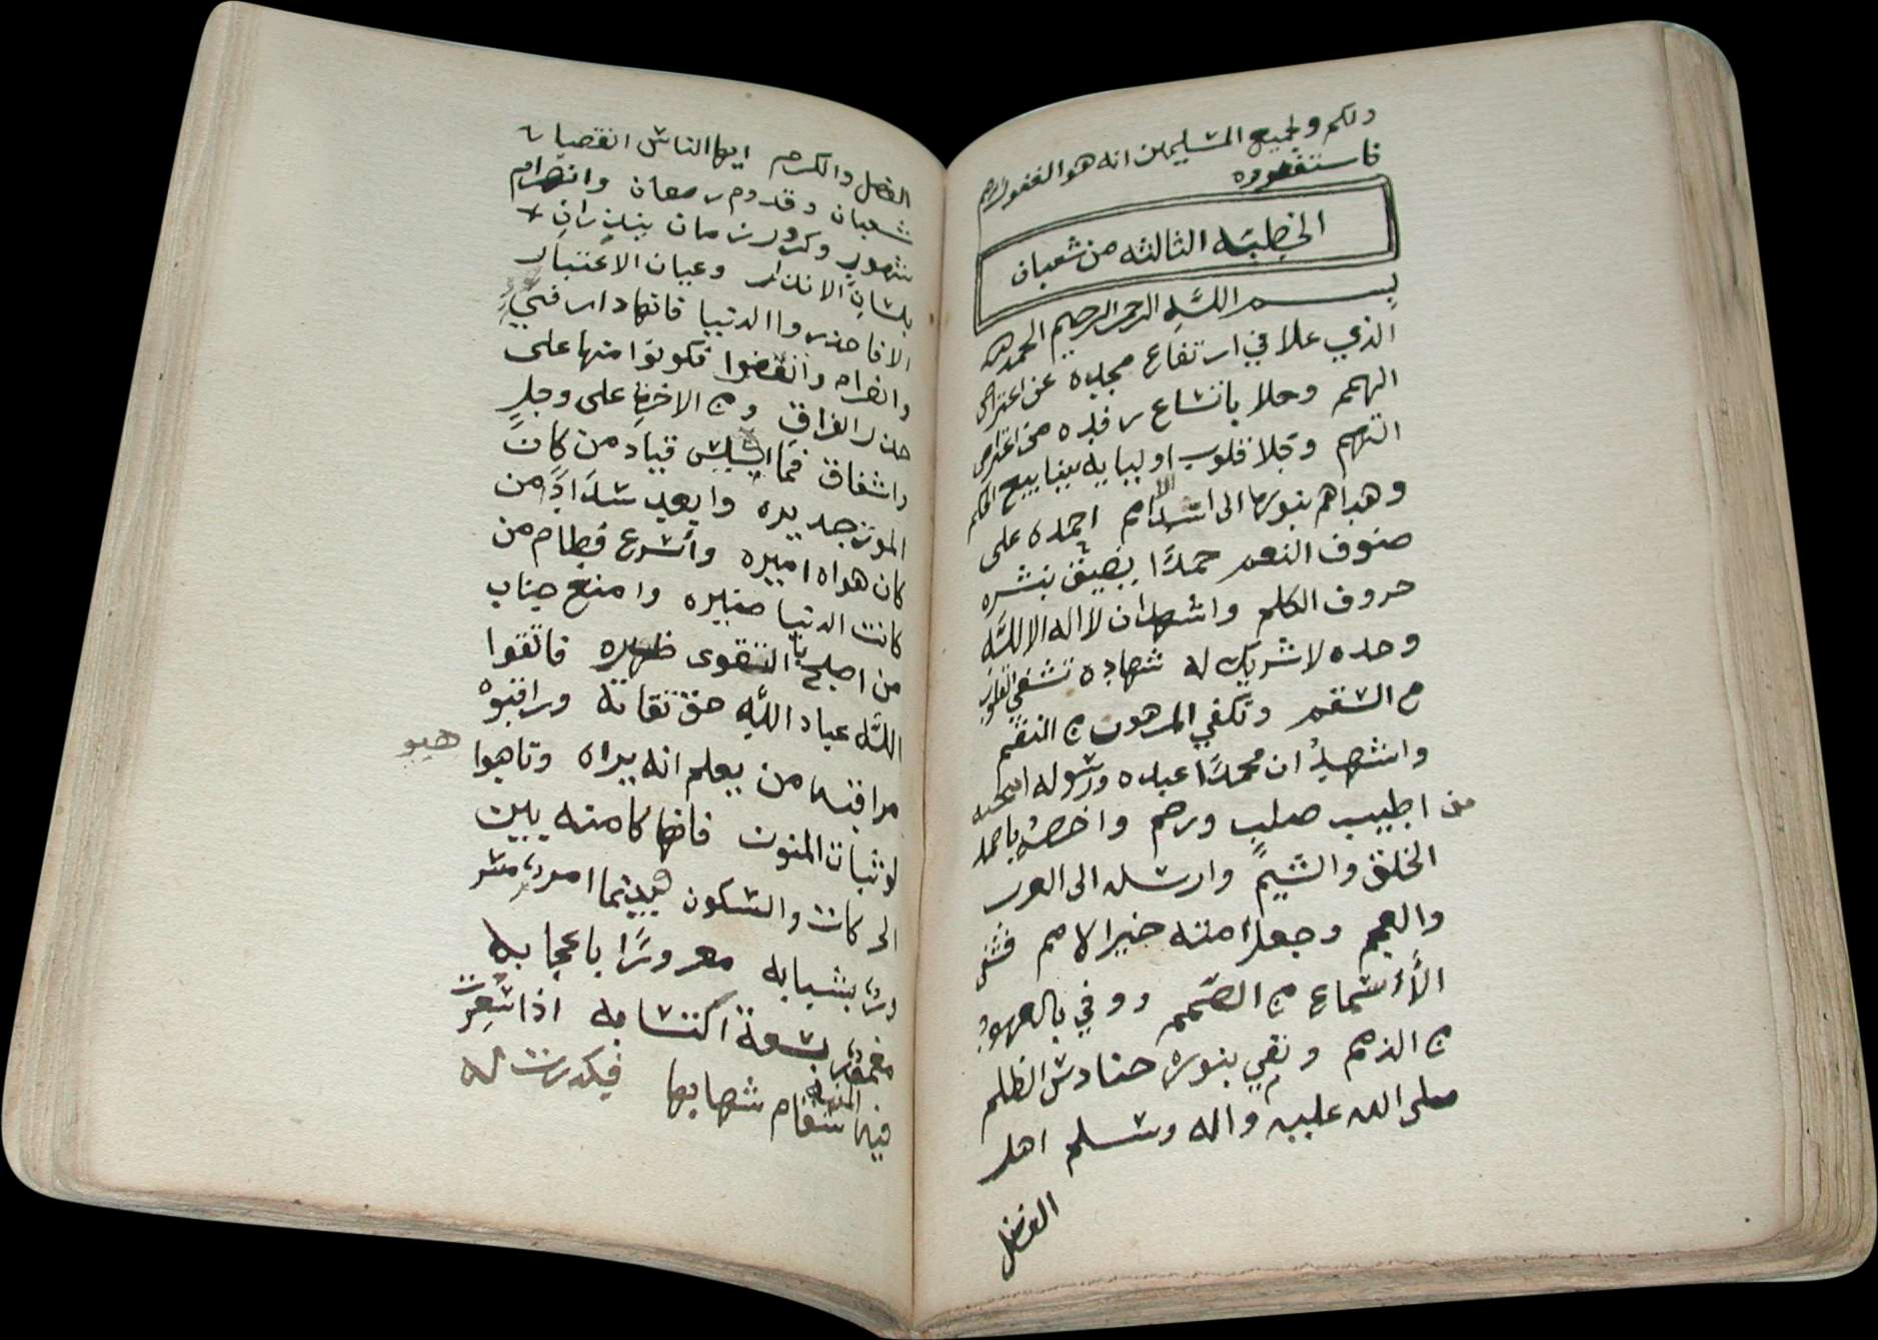 ولكم ولجميع المسلمين انه هو الغفور الرحيم
فاستغفروه
الخطبه الثالثه من شعبان
بسم الله الرحمن الرحيم الحمد لله
الذي علا في ارتفاع مجده عن اعتراض
الهمم وحلا باتساع رفده من اعتراض
التهم وجلا قلوب اوليايه بينابيع الحكم
وهداهم بنورها الى اسد الامم احمده على
صنوف النعم حمدًا يضيق بنشره
حروف الكلم واشهد ان لا اله الا الله
وحده لا شريك له شهادة تشفي القلوب
من السقم وتكفي المرهوب من النقم
واشهد ان محمدًا عبده ورسوله انتجبه
من اطيب صلب ورحم واخصه باحمد
الخلق والشيم وارسله الى العرب
والعجم وجعل امته خير الامم فشفى
الأسماع من الصمم ووفي بالعهود
من الذمم ونفي بنوره حنادس الظلم
صلى الله عليه واله وسلم اهل
الفضل
الفضل والكرم ايها الناس انقضاء
شعبان وقدوم رمضان وانصرام
شهور وكرور زمان ينذران
بلسان الانذار وعيان الاعتبار
الا فاحذروا الدنيا فانها دار
وانصرام وانقضوا فكونوا منها على
حذر الفراق ومن الاخره على وجل
واشفاق فما اسلس قياد من كان
الموت جديره وابعد سدادًا من
كان هواه اميره واسرع فطام من
كانت الدنيا ضيره وامنع جناب
من اصبح بالتقوى ظهيره فاتقوا
الله عباد الله حق تقاته وراقبوه
مراقبة من يعلم انه يراه وتاهبوا
لوثبات المنون فانها كامنه بين
الحركات والسكون بينما المرء مسر
ورا بشبابه مغرورًا باعجابه
مغمورا بسعة اكتسابه اذا سعرت
فيه المنيه سقام شهابها فكدرت له